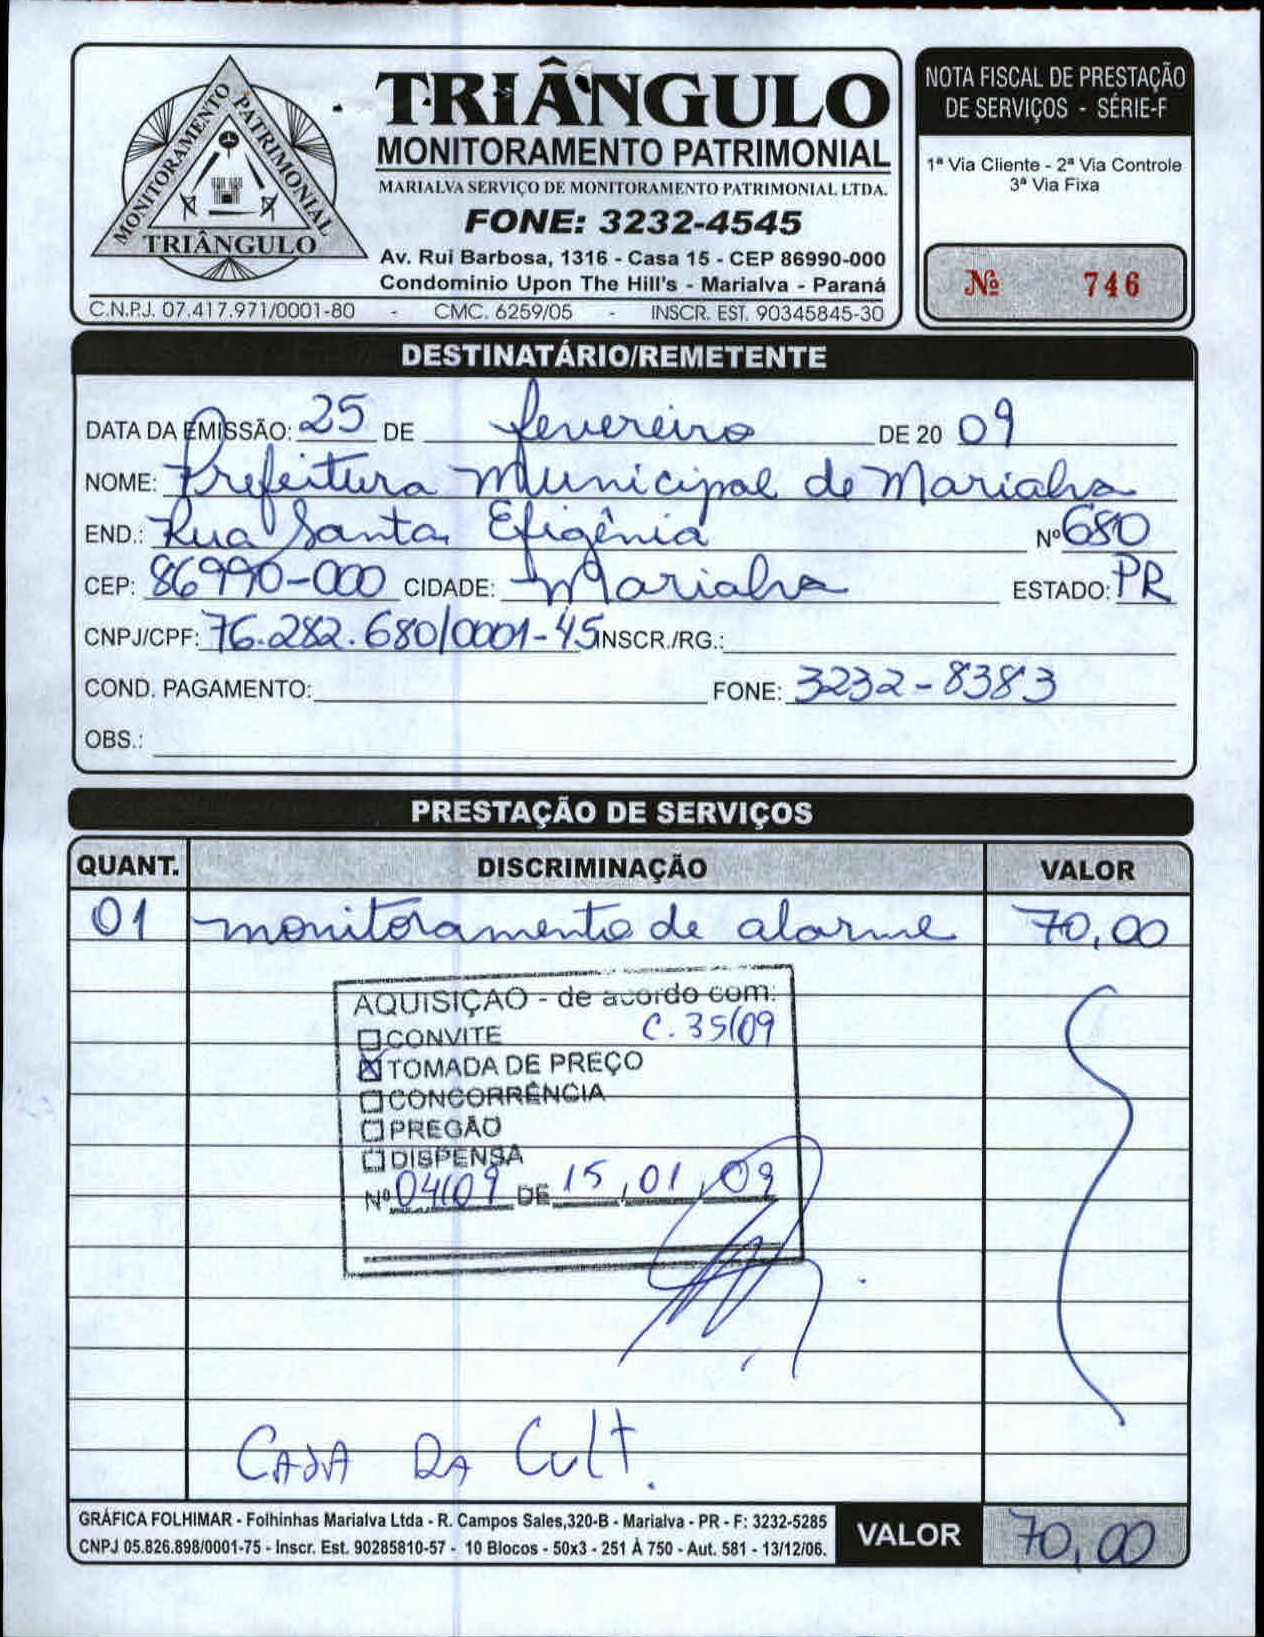 MONITORAMENTO PATRIMONIAL
TRIÂNGULO
TRIÂNGULO
MONITORAMENTO PATRIMONIAL
MARIALVA SERVIÇO DE MONITORAMENTO PATRIMONIAL LTDA.
FONE: 3232-4545
Av. Rui Barbosa, 1316 - Casa 15 - CEP 86990-000
Condominio Upon The Hill's - Marialva - Paraná
C.N.P.J. 07.417.971/0001-80 - CMC. 6259/05 - INSCR. EST. 90345845-30
NOTA FISCAL DE PRESTAÇÃO
DE SERVIÇOS - SÉRIE-F
1ª Via Cliente - 2ª Via Controle
3ª Via Fixa
Nº 746
DESTINATÁRIO/REMETENTE
DATA DA EMISSÃO: 25 DE fevereiro DE 20 09
NOME: Prefeitura Municipal de Marialva
END.: Rua Santa Efigênia Nº 680
CEP: 86990-000 CIDADE: Marialva ESTADO: PR
CNPJ/CPF: 76.282.680/0001-45 INSCR./RG.:
COND. PAGAMENTO: FONE: 3232-8383
OBS.:
PRESTAÇÃO DE SERVIÇOS
QUANT. DISCRIMINAÇÃO VALOR
01 monitoramento de alarme 70,00
AQUISIÇÃO - de acordo com:
CONVITE C. 35/09
TOMADA DE PREÇO
CONCORRÊNCIA
PREGÃO
DISPENSA
Nº 04/09 DE 15,01,09
CASA DA Cult.
GRÁFICA FOLHIMAR - Folhinhas Marialva Ltda - R. Campos Sales,320-B - Marialva - PR - F: 3232-5285
CNPJ 05.826.898/0001-75 - Inscr. Est. 90285810-57 - 10 Blocos - 50x3 - 251 À 750 - Aut. 581 - 13/12/06.
VALOR 70,00